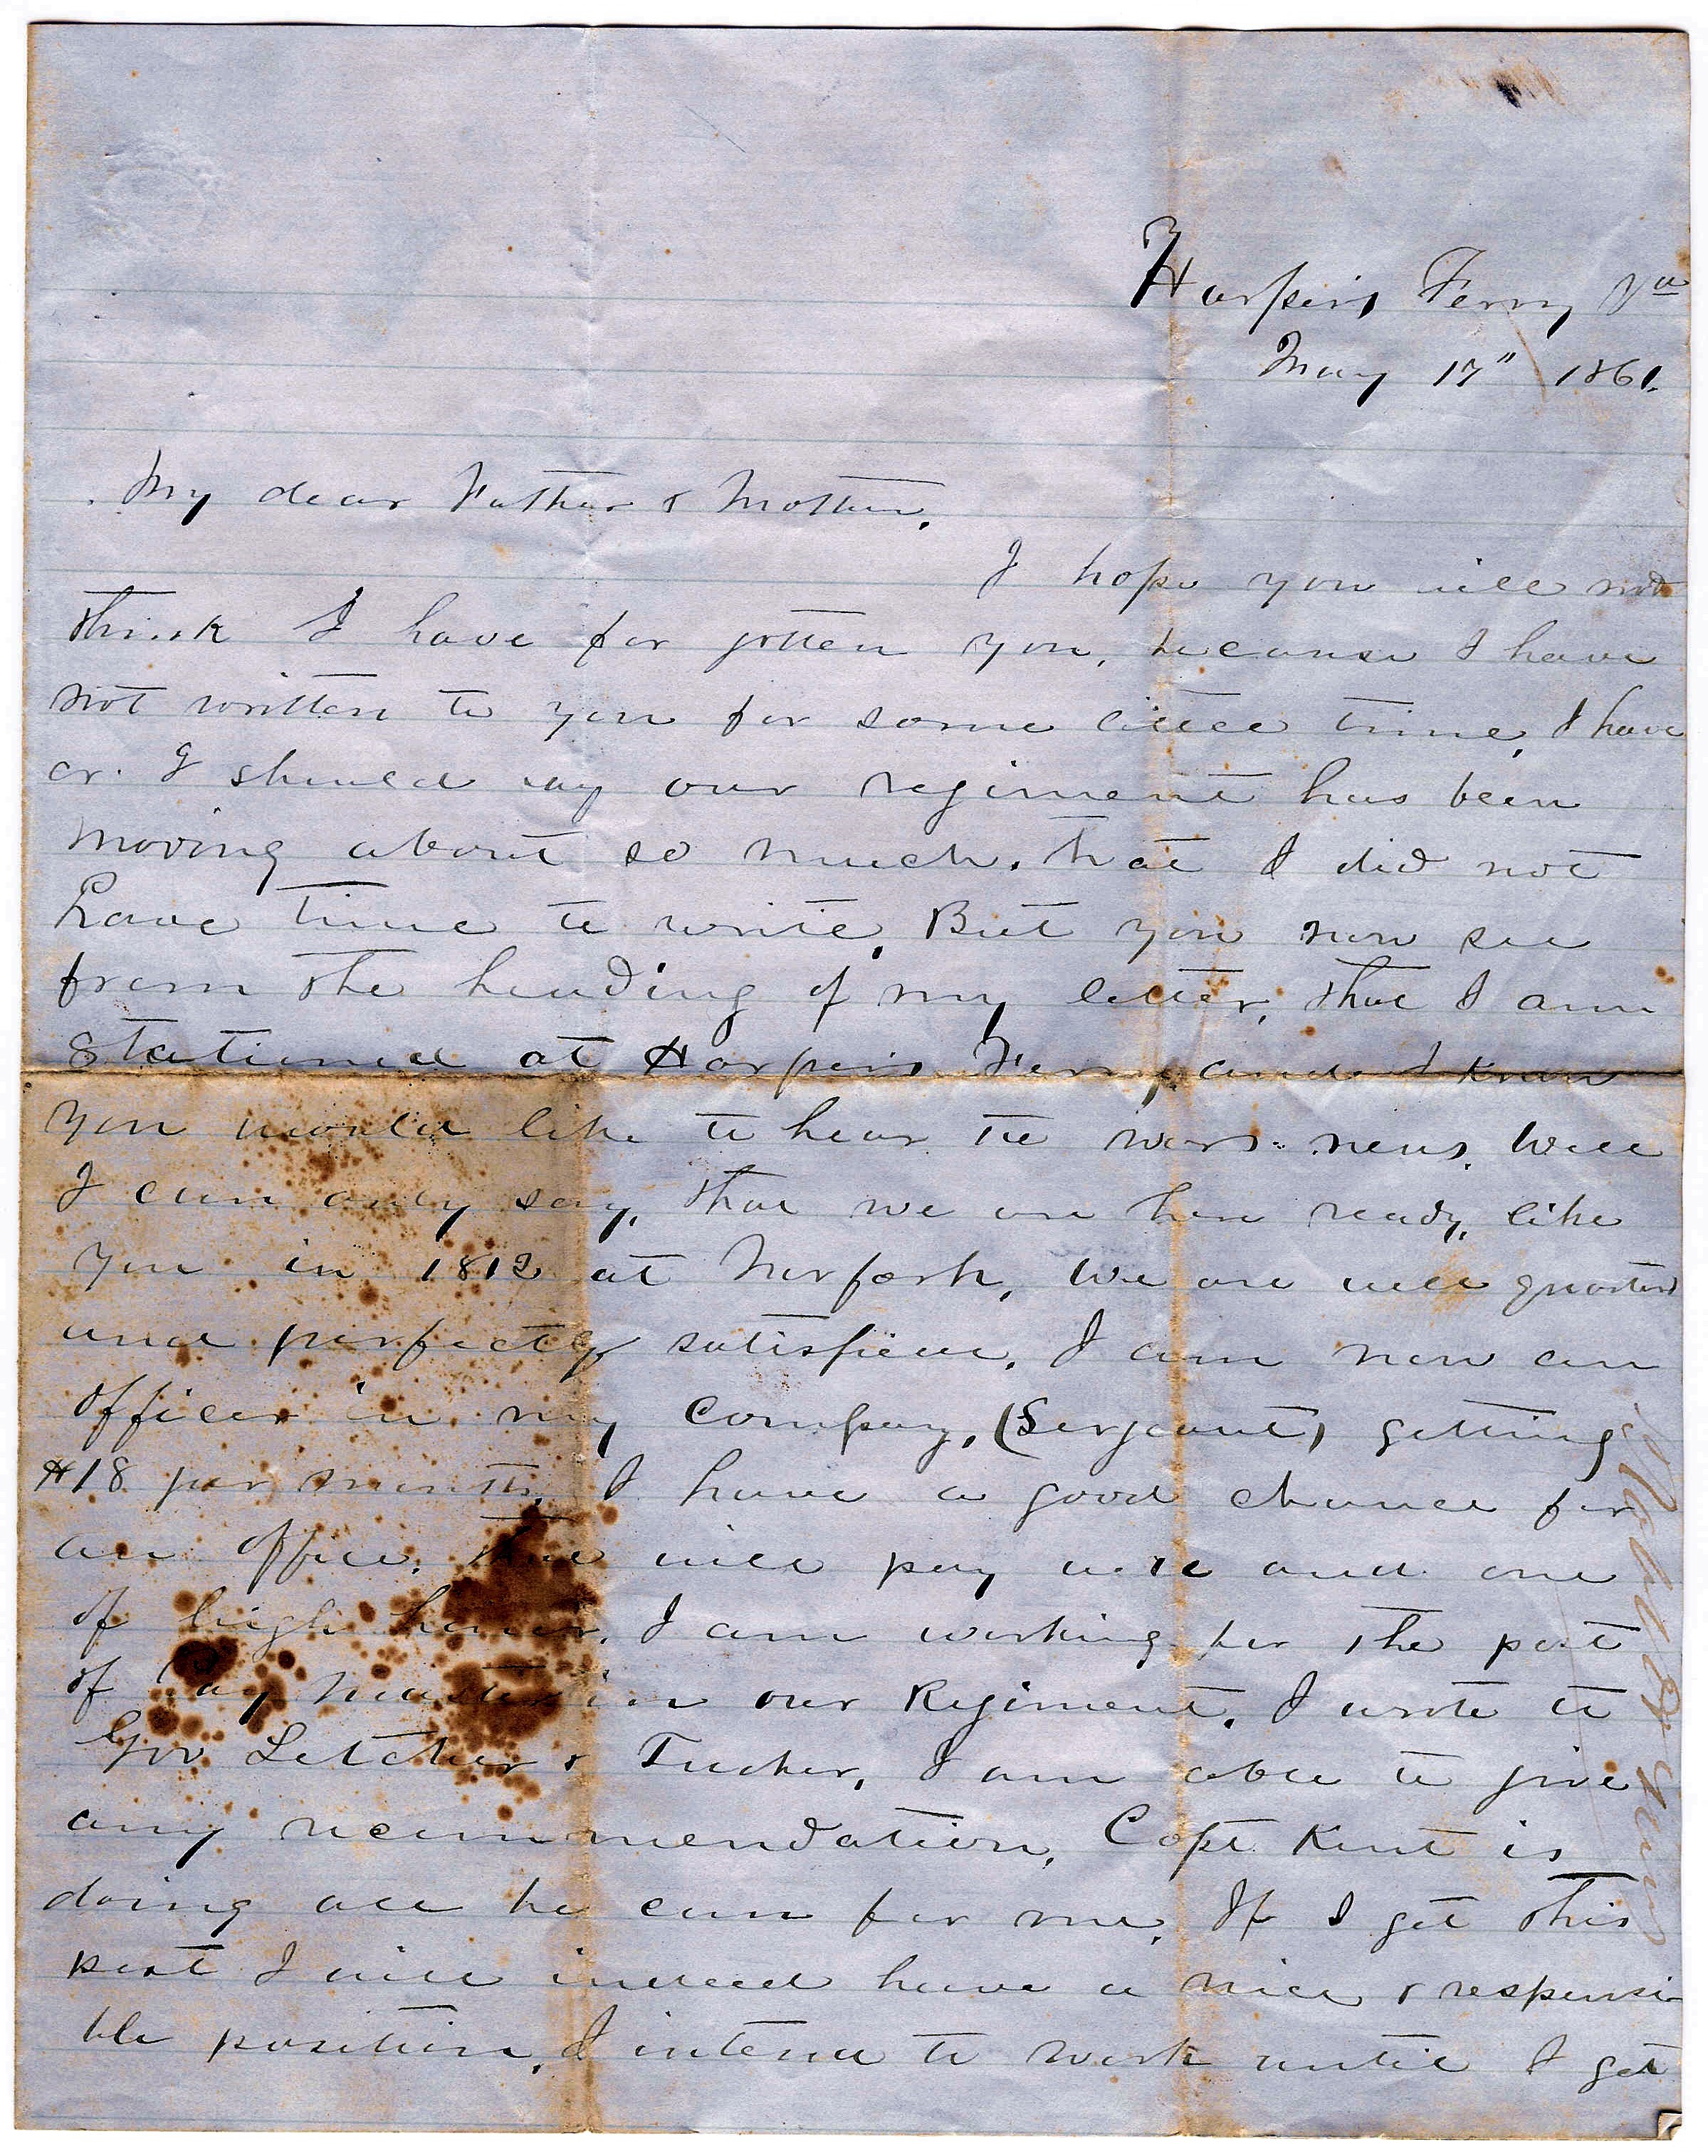 Harper's Ferry Va
May 17" 1861.
My dear Father & Mother,
I hope you will not
think I have for gotten you, because I have
not written to you for some little time, I have
or I should say our regiment has been
moving about so much, that I did not
have time to write. But you now see
from the heading of my letter, that I am
stationed at Harpers Ferry, and I know
you would like to hear the war news. Well
I can only say, that we are here ready, like
you in 1812 at Norfork, We are well quartered
and perfectly satisfied, I am now an
officer in my Company, (Serjeant) getting
$18 per month, I have a good chance for
an office, that will pay well and one
of high honor, I am working for the post
of Pay Master in our Regiment, I wrote to
Gov Letcher & Tucker, I am able to give
any recommendation, Capt Kent is
doing all he can for me, If I get this
post I will indeed have a nice & responsi
ble position, I intend to work until I get